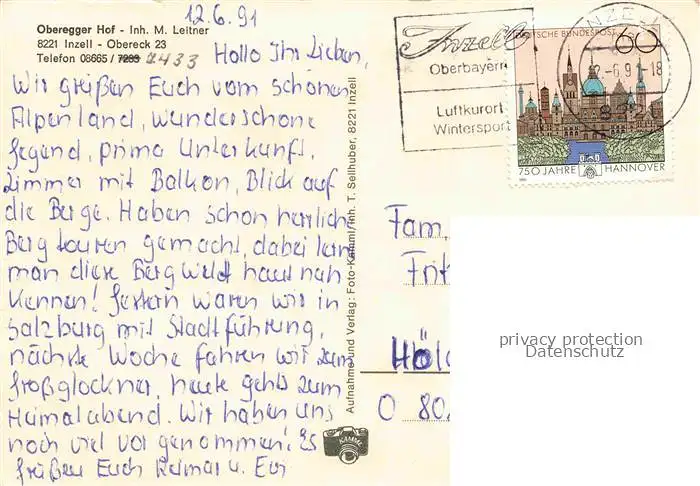 12.6.91
Oberegger Hof - Inh. M. Leitner
8221 Inzell - Obereck 23
Telefon 08665 / 7283 7433
Hallo Ihr Lieben,
Wir grüßen Euch vom schönen
Alpenland, wunderschöne
Gegend, prima Unterkunft,
Zimmer mit Balkon, Blick auf
die Berge. Haben schon herrliche
Bergtouren gemacht, dabei lern
man diese Bergwelt hautnah
kennen! Gestern waren wir in
Salzburg mit Stadtführung,
nächste Woche fahren wir zum
Großglockner, heute gehts zum
Heimatabend. Wir haben uns
noch viel vorgenommen! Es
grüßen Euch Reimar u. Evi
Aufnahme und Verlag: Foto-Kamml/Inh. T. Sellhuber, 8221 Inzell
KAMML
Inzell
Oberbayern
Luftkurort
Wintersport
DEUTSCHE BUNDESPOST
60
750 JAHRE HANNOVER
INZELL
-6.9 -18
Fam.
Frit
Höl
O 80
privacy protection
Datenschutz